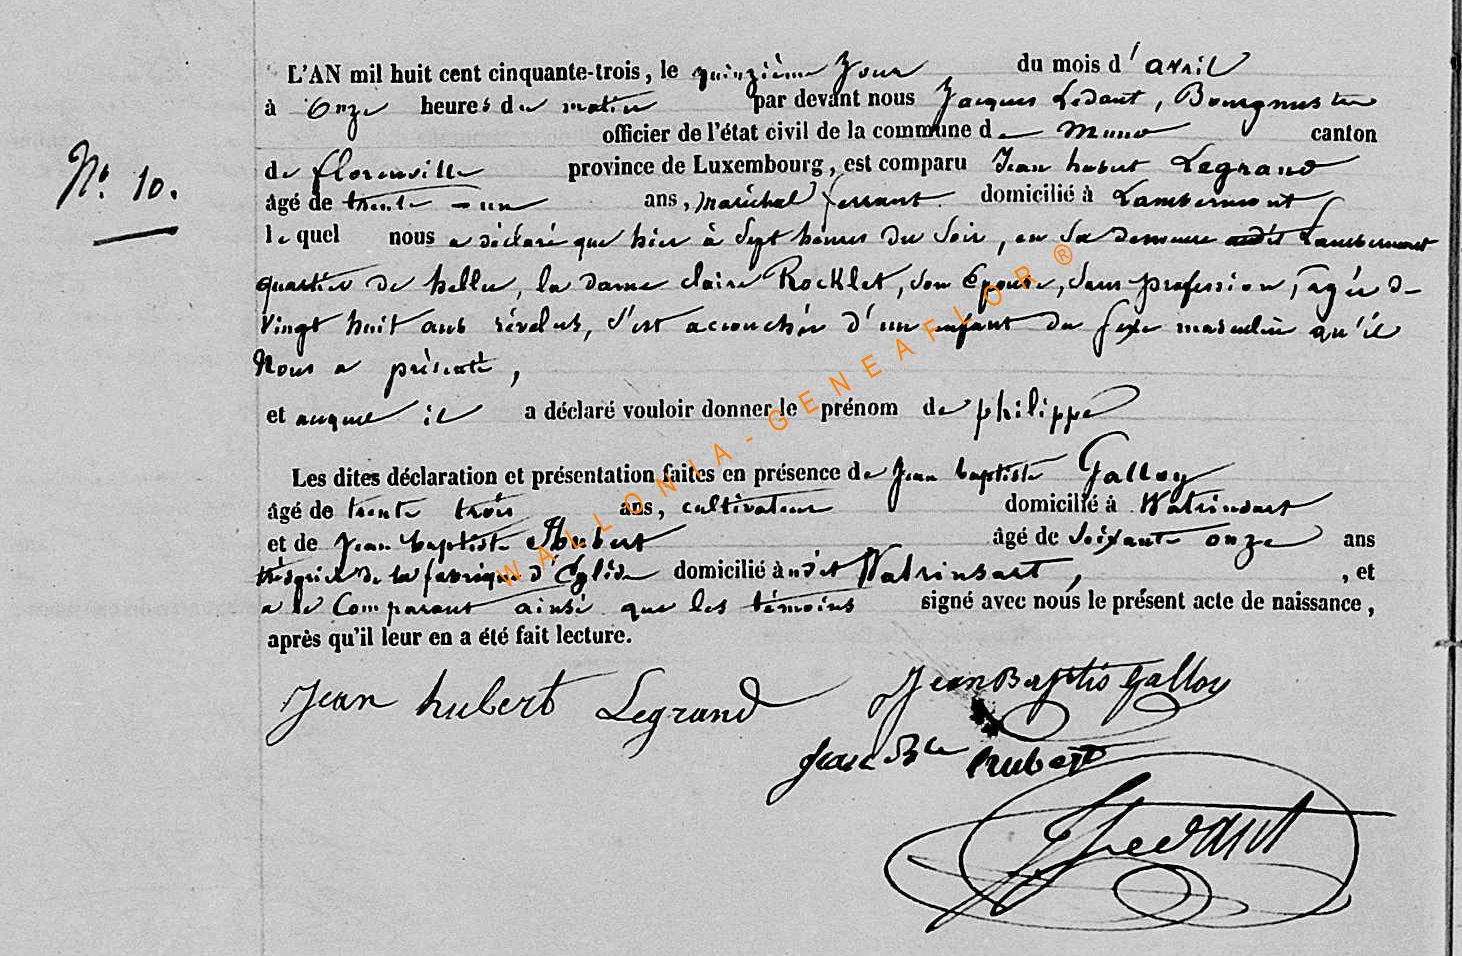 L'AN mil huit cent cinquante-trois, le quinzième jour du mois d'avril
à onze heures du matin par devant nous Jacques Ledant, Bourgmestre
officier de l'état civil de la commune de Muno canton
N° 10.
de florenville province de Luxembourg, est comparu Jean hubert Legrand
âgé de trente-un ans, maréchal ferrant domicilié à Lambermont
lequel nous a déclaré que hier à sept heures du soir, en sa demeure audit Lambermont
quartier de hellu, la dame claire Rocklet, son Épouse, sans profession, agée de
vingt huit ans révolus, s'est accouchée d'un enfant du sexe masculin qu'il
Nous a présenté,
et auquel il a déclaré vouloir donner le prénom de philippe
Les dites déclaration et présentation faites en présence de Jean baptiste Galloy
âgé de trente trois ans, cultivateur domicilié à Watrinsart
et de Jean baptiste Hubert âgé de soixante onze ans
trésorier de la fabrique d'Église domicilié à udit Watrinsart, , et
a le Comparant ainsi que les témoins signé avec nous le présent acte de naissance,
après qu'il leur en a été fait lecture.
Jean hubert Legrand
Jean Baptis Galloy
Jean Bte hubert
JLedant
WALLONIA-GENEAFLOR®